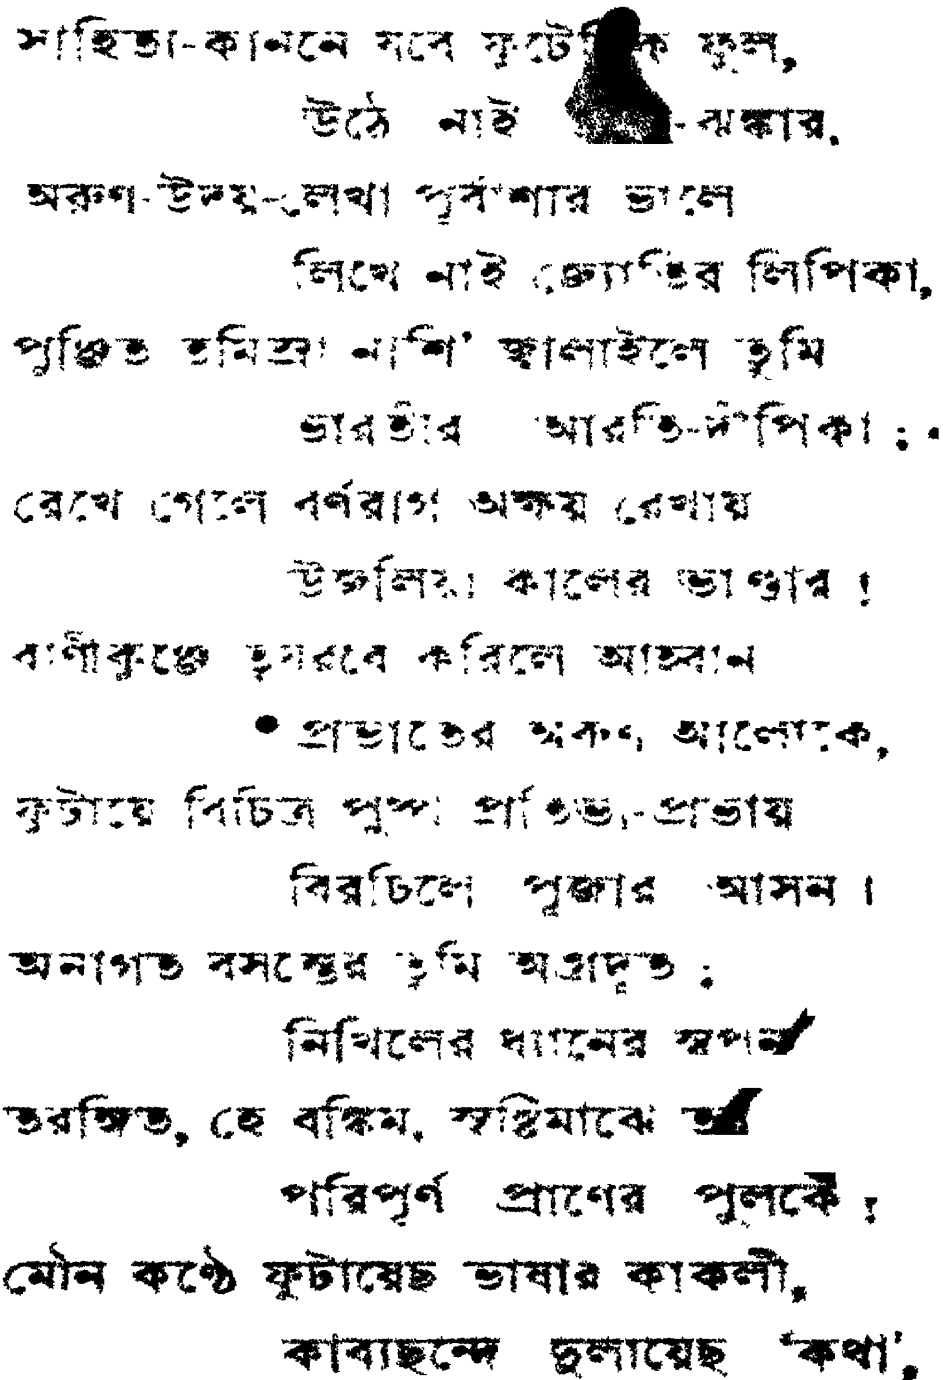 সাহিত্য-কাননে যবে ফুটেনিক ফুল,
উঠে নাই -ঝঙ্কার,
অরুণ-উদয়-লেখা পূর্বাশার ভালে
লিখে নাই জ্যোতির লিপিকা,
পুঞ্জিত তমিস্রা নাশি' জ্বালাইলে তুমি
ভারতীর আরতি-দীপিকা ;
রেখে গেলে বর্ণরাগ অক্ষয় রেখায়
উজলিয়া কালের ভাণ্ডার !
বাণীকুঞ্জে কুহুরবে করিলে আহ্বান
প্রভাতের অরুণ আলোকে,
ফুটায়ে বিচিত্র পুষ্প প্রতিভা-প্রভায়
বিরচিলে পূজার আসন ।
অনাগত বসন্তের তুমি অগ্রদূত ;
নিখিলের ধ্যানের স্বপন
তরঙ্গিত, হে বঙ্কিম, সৃষ্টিমাঝে তব
পরিপূর্ণ প্রাণের পুলকে !
মৌন কণ্ঠে ফুটায়েছ ভাষার কাকলী,
কাব্যছন্দে দুলায়েছ 'কথা',